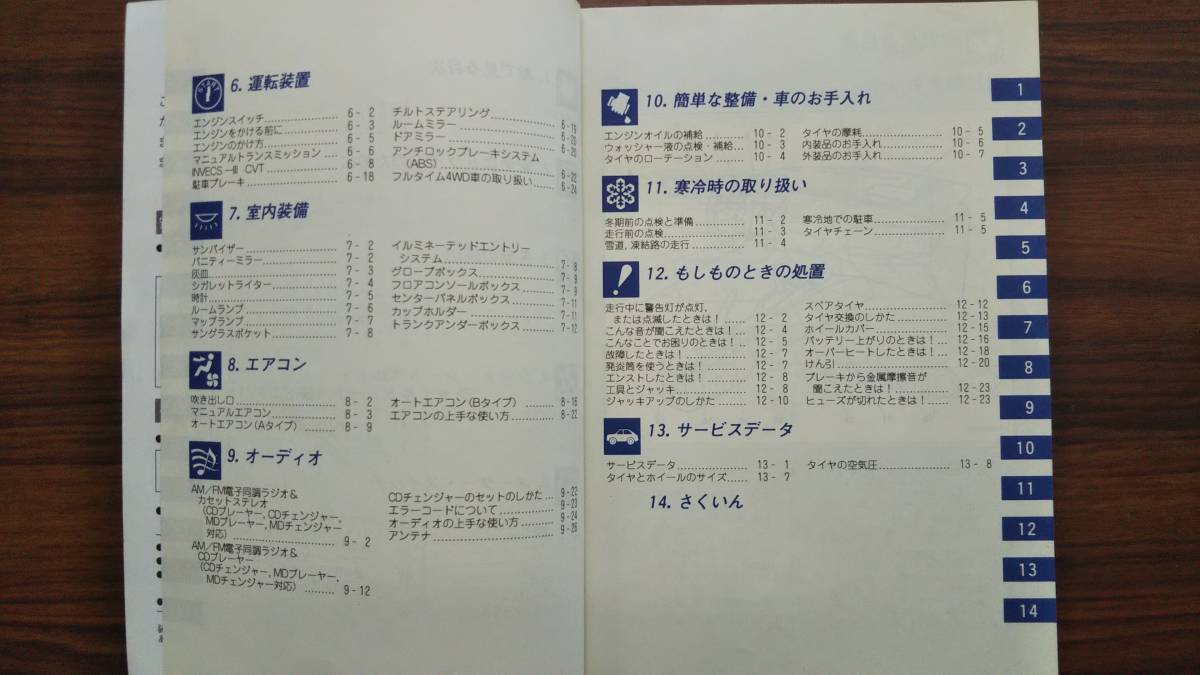 6. 運転装置
エンジンスイッチ 6-2
エンジンをかける前に 6-3
エンジンのかけ方 6-5
マニュアルトランスミッション 6-6
INVECS-Ⅲ CVT 6-8
駐車ブレーキ 6-18
チルトステアリング 6-19
ルームミラー 6-20
ドアミラー 6-20
アンチロックブレーキシステム
(ABS) 6-22
フルタイム4WD車の取り扱い 6-24
7. 室内装備
サンバイザー 7-2
バニティーミラー 7-2
灰皿 7-3
シガレットライター 7-4
時計 7-5
ルームランプ 7-6
マップランプ 7-7
サングラスポケット 7-8
イルミネーテッドエントリー
システム 7-8
グローブボックス 7-9
フロアコンソールボックス 7-9
センターパネルボックス 7-11
カップホルダー 7-11
トランクアンダーボックス 7-12
8. エアコン
吹き出し口 8-2
マニュアルエアコン 8-3
オートエアコン(Aタイプ) 8-9
オートエアコン(Bタイプ) 8-16
エアコンの上手な使い方 8-22
9. オーディオ
AM/FM電子同調ラジオ&
カセットステレオ
(CDプレーヤー,CDチェンジャー,
MDプレーヤー,MDチェンジャー
対応) 9-2
AM/FM電子同調ラジオ&
CDプレーヤー
(CDチェンジャー,MDプレーヤー,
MDチェンジャー対応) 9-12
CDチェンジャーのセットのしかた 9-22
エラーコードについて 9-23
オーディオの上手な使い方 9-24
アンテナ 9-26
10. 簡単な整備・車のお手入れ
エンジンオイルの補給 10-2
ウォッシャー液の点検・補給 10-3
タイヤのローテーション 10-4
タイヤの摩耗 10-5
内装品のお手入れ 10-6
外装品のお手入れ 10-7
11. 寒冷時の取り扱い
冬期前の点検と準備 11-2
走行前の点検 11-3
雪道,凍結路の走行 11-4
寒冷地での駐車 11-5
タイヤチェーン 11-5
12. もしものときの処置
走行中に警告灯が点灯,
または点滅したときは! 12-2
こんな音が聞こえたときは! 12-4
こんなことでお困りのときは! 12-5
故障したときは! 12-7
発炎筒を使うときは! 12-7
エンストしたときは! 12-8
工具とジャッキ 12-8
ジャッキアップのしかた 12-10
スペアタイヤ 12-12
タイヤ交換のしかた 12-13
ホイールカバー 12-15
バッテリー上がりのときは! 12-16
オーバーヒートしたときは! 12-18
けん引 12-20
ブレーキから金属摩擦音が
聞こえたときは! 12-23
ヒューズが切れたときは! 12-23
13. サービスデータ
サービスデータ 13-1
タイヤとホイールのサイズ 13-7
タイヤの空気圧 13-8
14. さくいん
1
2
3
4
5
6
7
8
9
10
11
12
13
14